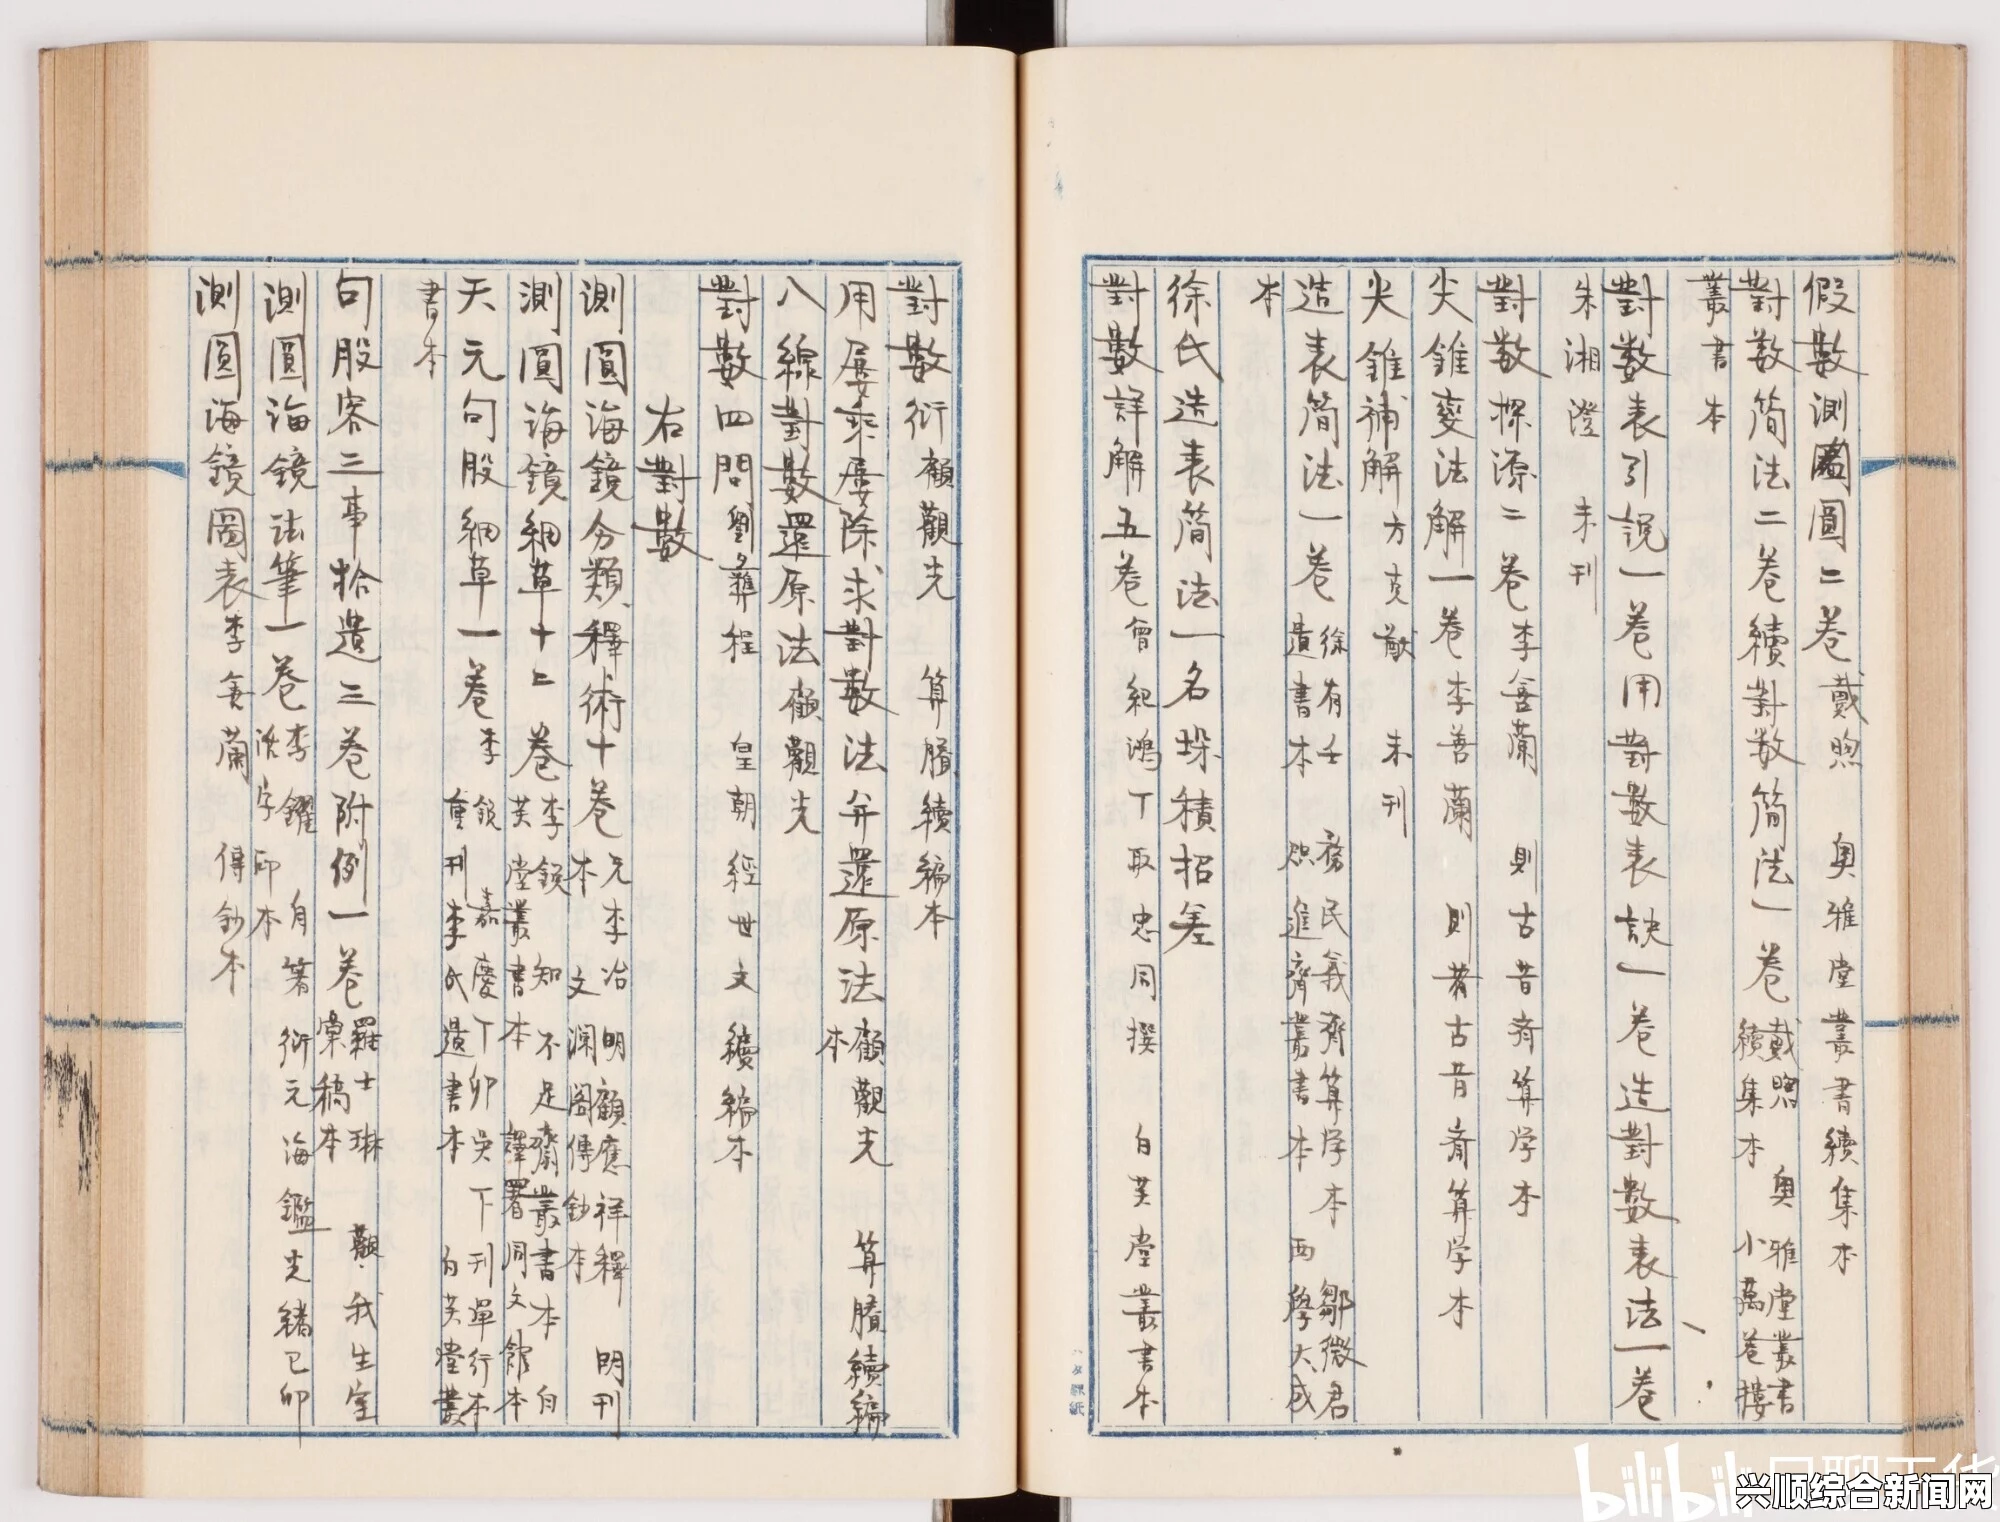 假數測圓二卷戴煦 奧雅堂叢書續集本
對数簡法二卷續對数簡法一卷戴煦 奧雅堂叢書
續集本 小萬卷樓
叢書本
對数表引說一卷用對數表訣一卷造對數表法一卷
朱湘澄 未刊
對数探源二卷李善蘭 則古昔斋算学本
尖錐变法解一卷李善蘭 則古昔斋算学本
尖錐補解方克猷 未刊
造表简法一卷徐有壬 務民義齊算学本 鄒徵君
遺書本 進齊叢書本 西學大成
本
徐氏造表简法一名垛積招差
對數詳解五卷曾紀鴻丁取忠同撰 白芙堂叢書本
對數衍顧觀光 算賸續編本
用屡乘屡除求對數法弁還原法顧觀光 算賸續編
本
八線對數還原法顧觀光
對數四問劉彝程 皇朝經世文續編本
右對數
測圓海鏡分類釋術十卷元李冶 明顧應祥釋 明刊
本 文瀾阁傳鈔本
測圓海鏡細草十二卷李銳 知不足齋叢書本 白
芙堂叢書本 譯署同文館本
天元句股細草一卷李銳 嘉慶丁卯吴下刊單行本
重刊李氏遺書本 白芙堂叢
書本
句股容三事拾遺三卷附例一卷羅士琳 觀我生室
彙稿本
測圓海鏡法筆一卷李鏐 自箸衍元海鑑光緒己卯
活字印本
測圓海鏡圖表李善蘭 傳鈔本
bilibili
兴顺综合新闻网